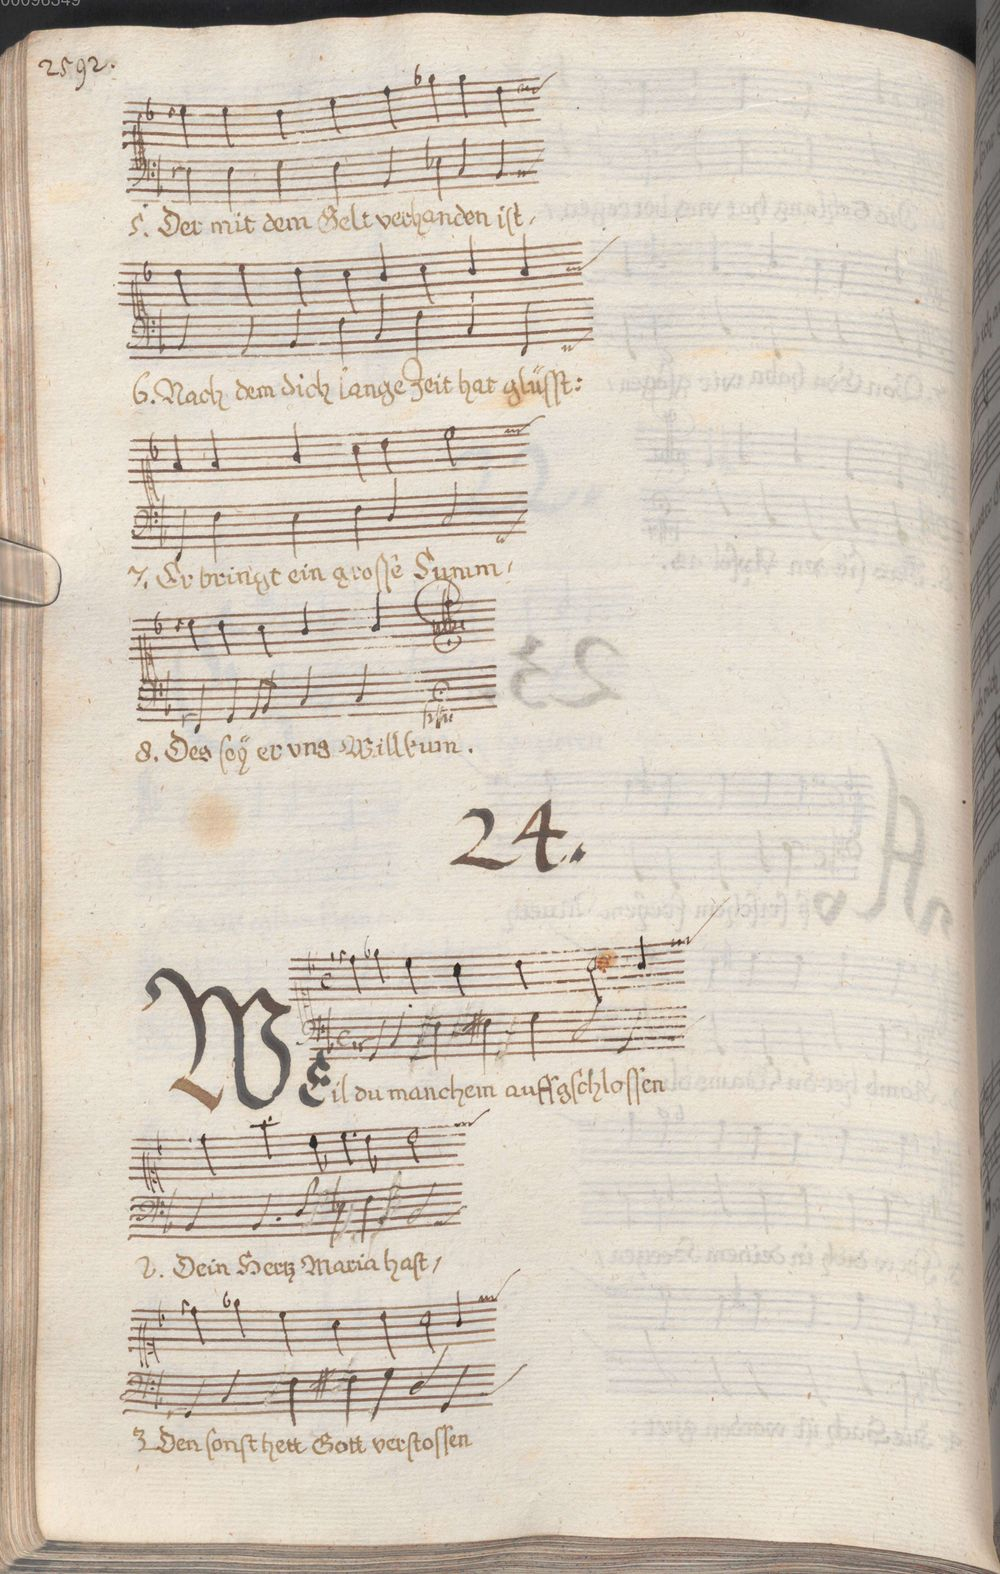 00096349
2592.
5. Der mit dem Gelt verhanden ist,
6. Nach dem dich lange Zeit hat glüsst:
7. Er bringt ein grosse Summ,
8. Des seÿ er vns Willkum.
24.
WEil du manchem auffgschlossen
2. Dein Hertz Maria hast,
3 Den sonst hett Gott verstossen